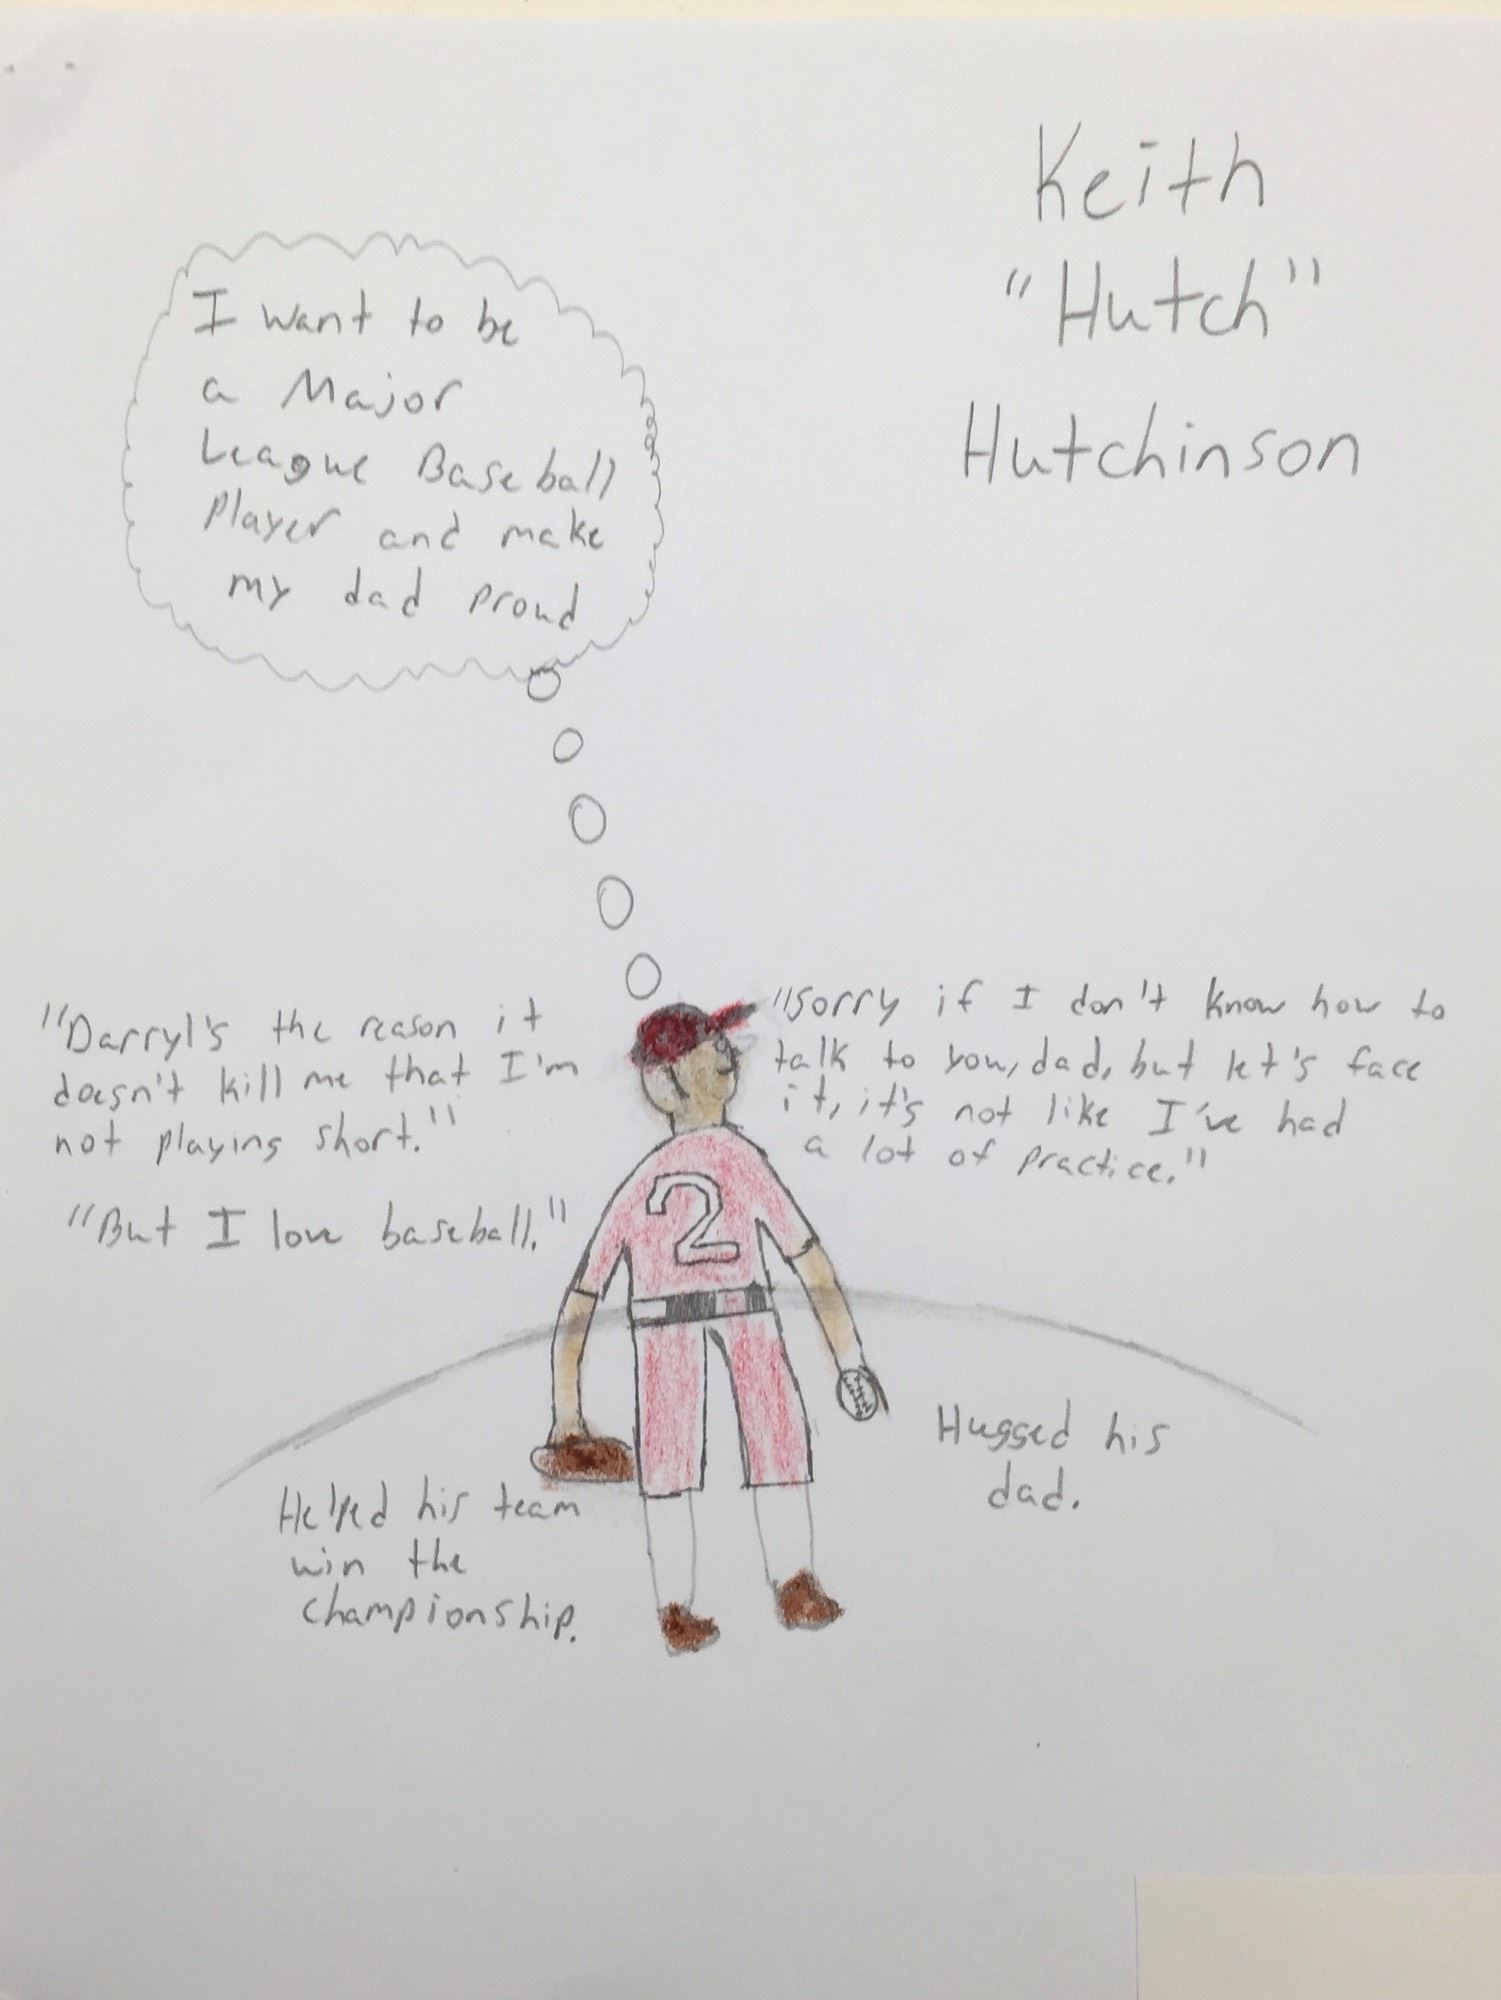 Keith
"Hutch"
Hutchinson
I want to be
a Major
League Baseball
Player and make
my dad proud
"Darryl's the reason it
doesn't kill me that I'm
not playing short."
"But I love baseball."
"Sorry if I don't know how to
talk to you, dad, but let's face
it, it's not like I've had
a lot of practice."
2
Helped his team
win the
championship.
Hugged his
dad.